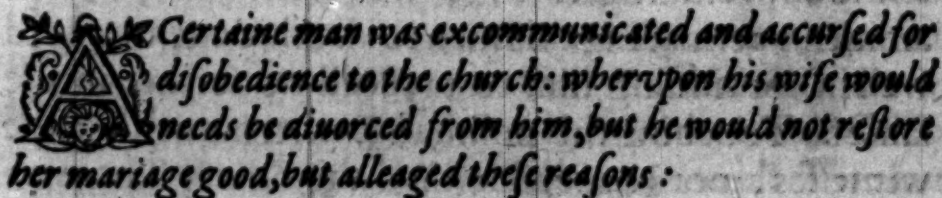 A Certaine man was excommunicated and accurſed for
diſobedience to the church: whervpon his wife would
needs be diuorced from him, but he would not reſtore
her mariage good, but alleaged theſe reaſons :